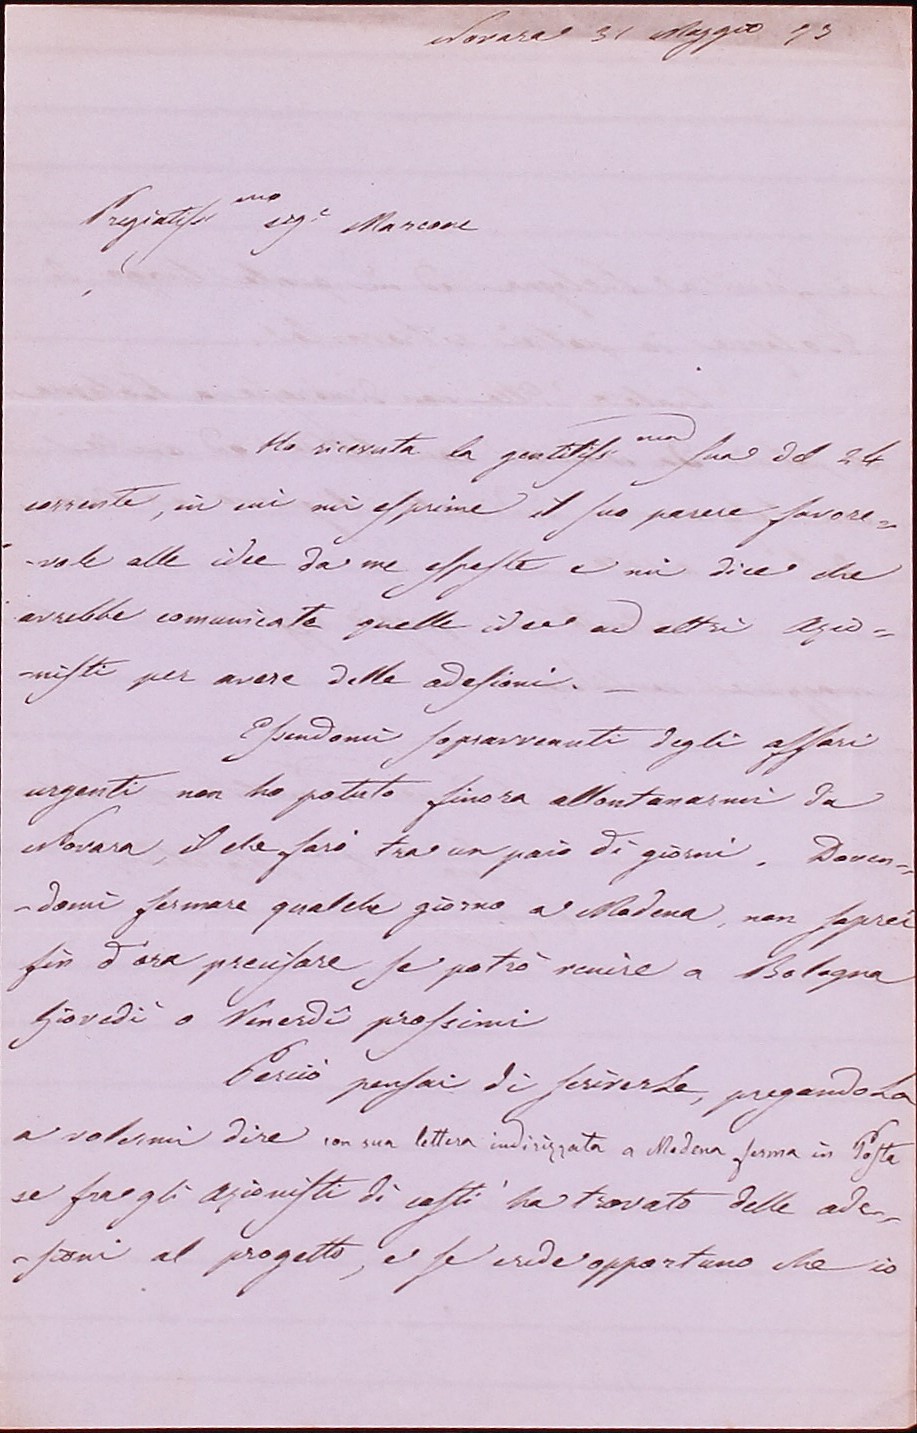 Novara 31 Maggio 73
Pregiatiss.mo sig.r Marconi
Ho ricevuta la gentiliss.ma sua del 24
corrente, in cui mi esprime il suo parere favore=
=vole alle idee da me esposte e mi dice che
avrebbe comunicate quelle idee ad altri Azio=
=nisti per avere delle adesioni. —
Essendomi sopravvenuti degli affari
urgenti non ho potuto finora allontanarmi da
Novara, il che farò tra un paio di giorni. Doven=
=domi fermare qualche giorno a Modena, non saprei
fin d'ora precisare se potrò venire a Bologna
Giovedì o Venerdì prossimi
Perciò pensai di scriverLe, pregandoLa
a volermi dire con sua lettera indirizzata a Modena ferma in Posta
se fra gli Azionisti di costì ha trovato delle ade=
=sioni al progetto, e se crede opportuno che io